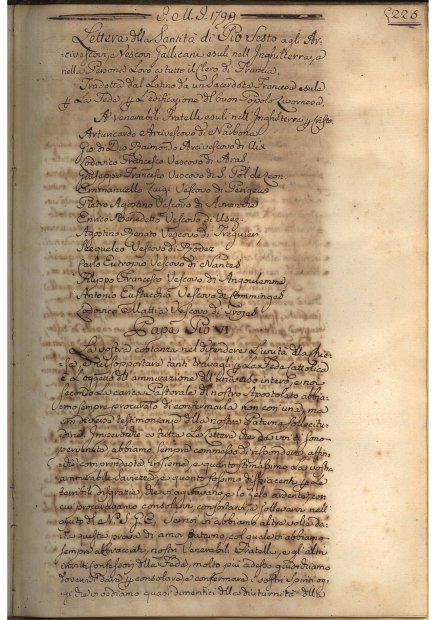 G. M. G. 1799
225
Lettera della Santità di Pio Sesto agli Ar-
civescovi, e Vescovi Gallicani esuli nell'Inghilterra, e
nella Persona Loro a tutto il Clero di Francia.
Tradotta dal Latino da un Sacerdote Francese esule
La Fede, e L'edificazione del buon Popolo Livornese.
A' Venerabili Fratelli esuli nell'Inghilterra
Arturicardo Arcivescovo di Narbona
Gio: di Dio Raimondo Arcivescovo di Aix
Lodovico Francesco Vescovo di Aras.
Giuseppe Francesco Vescovo di S. Pol de Leon.
Emmanuello Luigi Vescovo di
Pietro Agostino Vescovo di Avranches
Enrico Benedetto Vescovo di Usez.
Agostino Renato Vescovo di Treguier,
Vescovo di Rodez
Carlo Eutropio Vescovo di Nantes
Filippo Francesco Vescovo di Angoulemme
Antonio Eustacchio Vescovo di Comminges
Lodovico Mattia Vescovo di Troyes
Papa Pio VI
La vostra costanza nel difendere L'unità della Chie-
sa, e nel sopportare tanti travagli La Fede Cattolica
è L'oggetto dell'ammirazione dell'universo intero, e noi
secondo la carica Pastorale di nostro Apostolato abbia-
mo sempre procurato di confermarla non con una, ma
con diverse testimonianze della nostra Paterna sollecitu-
dine. Imperocchè a tutte Le Lettere che da voi ci sono
pervenute abbiamo sempre commesso di rispondere, affin-
chè comprendeste insieme, e quanto stimassimo La vostra
ammirabile Saviezza, e quanto fossimo dispiacenti Le
terribili disgrazie che vi agitavano, e lo Zelo ardente con
cui procuravamo consolarvi, confortarvi, e sollevarvi nell'
ajuto di N. S. G. C. Se noi vi abbiamo altre volte da-
te queste prove di amor Paterno, col quale vi abbiamo
sempre abbracciati, nostri Venerabili Fratelli, e gli altri
Confessori della Fede, molto più adesso giudichiamo
dovervi dare, e consolare, e confermare i vostri Spiriti og-
gi che vediamo quasi dimentichi della diuturnità delle